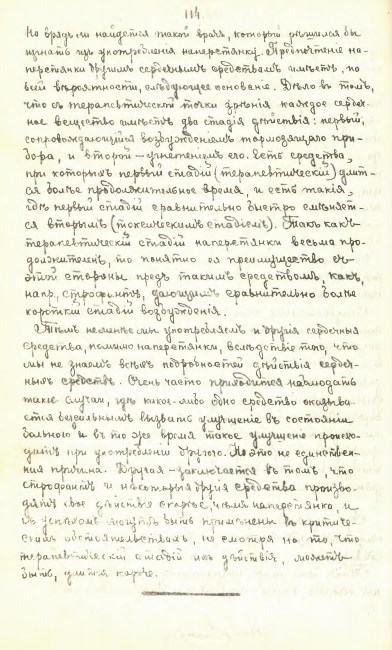 114
Но врядъ-ли найдется такой врачъ, который рѣшился бы
изгнать изъ употребленія наперстянку. Предпочтеніе на-
перстянки другимъ сердечнымъ средствамъ имѣетъ, по
всей вѣроятности, слѣдующее основаніе. Дѣло въ томъ,
что съ терапевтической точки зрѣнія каждое сердеч-
ное вещество имѣетъ два стадія дѣйствія: первый,
сопровождающійся возбужденіемъ тормозящаго при-
бора, и второй — угнетеніемъ его. Есть средства,
при которыхъ первый стадій (терапевтическій) длит-
ся болѣе продолжительное время, и есть такія,
гдѣ первый стадій сравнительно быстро смѣняет-
ся вторымъ (токсическимъ стадіемъ). Такъ какъ
терапевтическій стадій наперстянки весьма про-
должителенъ, то понятно ея преимущество съ
этой стороны предъ такимъ средствомъ, какъ,
напр., строфантъ, дающимъ сравнительно болѣе
короткій стадій возбужденія.
Тѣмъ не менѣе мы употребляемъ и другія сердечныя
средства, помимо наперстянки, вслѣдствіе того, что
мы не знаемъ всѣхъ подробностей дѣйствія сердеч-
ныхъ средствъ. Очень часто приходится наблюдать
такіе случаи, гдѣ какое-либо одно средство оказывa-
ется безсильнымъ вызвать улучшеніе въ состояніи
больного и въ то же время такое улучшеніе происхо-
дитъ при употребленіи другого. Но это не единствен-
ная причина. Другая — заключается въ томъ, что
строфантъ и нѣкоторыя другія средства произво-
дятъ свое дѣйствіе скорѣе, чѣмъ наперстянка, и
съ успѣхомъ могутъ быть примѣнены въ критиче-
скихъ обстоятельствахъ, не смотря на то, что
терапевтическій стадій ихъ дѣйствія, можетъ
быть, длится короче.